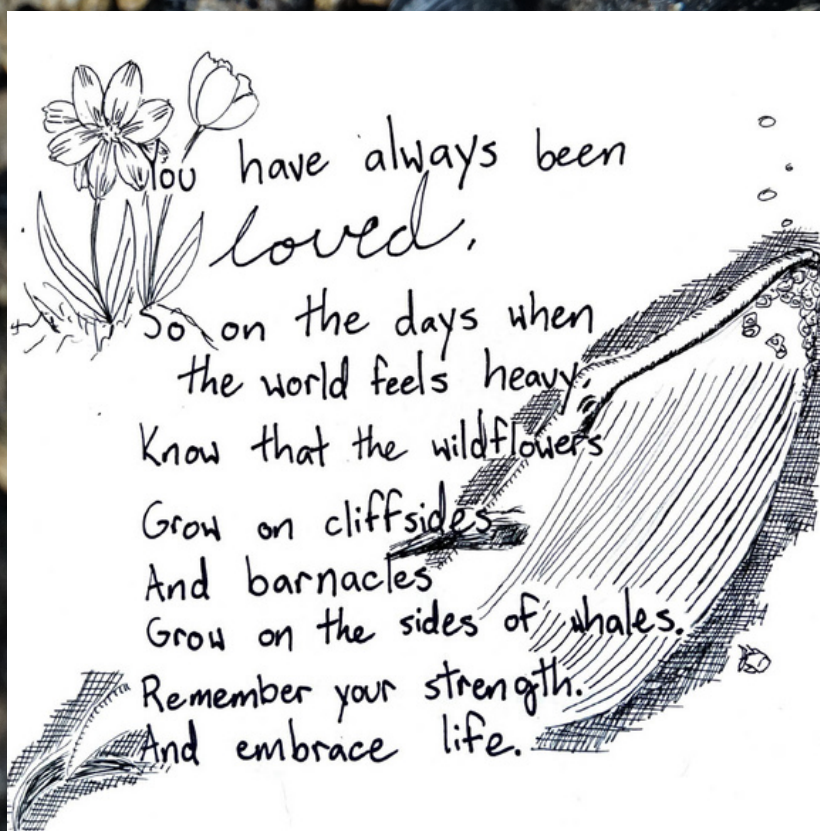 You have always been
loved.
So on the days when
the world feels heavy,
Know that the wildflowers
Grow on cliffsides
And barnacles
Grow on the sides of whales.
Remember your strength.
And embrace life.